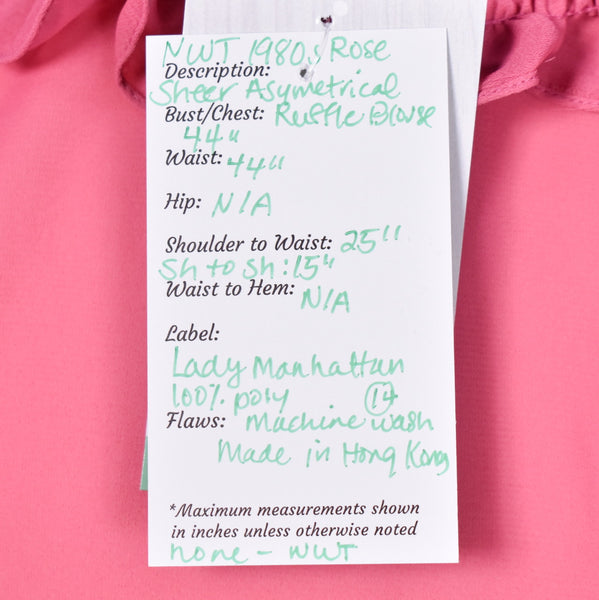 NWT 1980s Rose
Description:
Sheer Asymetrical
Bust/Chest: Ruffle Blouse
44"
Waist: 44"
Hip: N/A
Shoulder to Waist: 25"
Sh to Sh: 15"
Waist to Hem: N/A
Label:
Lady Manhattan
100% poly 14
Flaws: Machine wash
Made in Hong Kong
*Maximum measurements shown
in inches unless otherwise noted
none - NWT